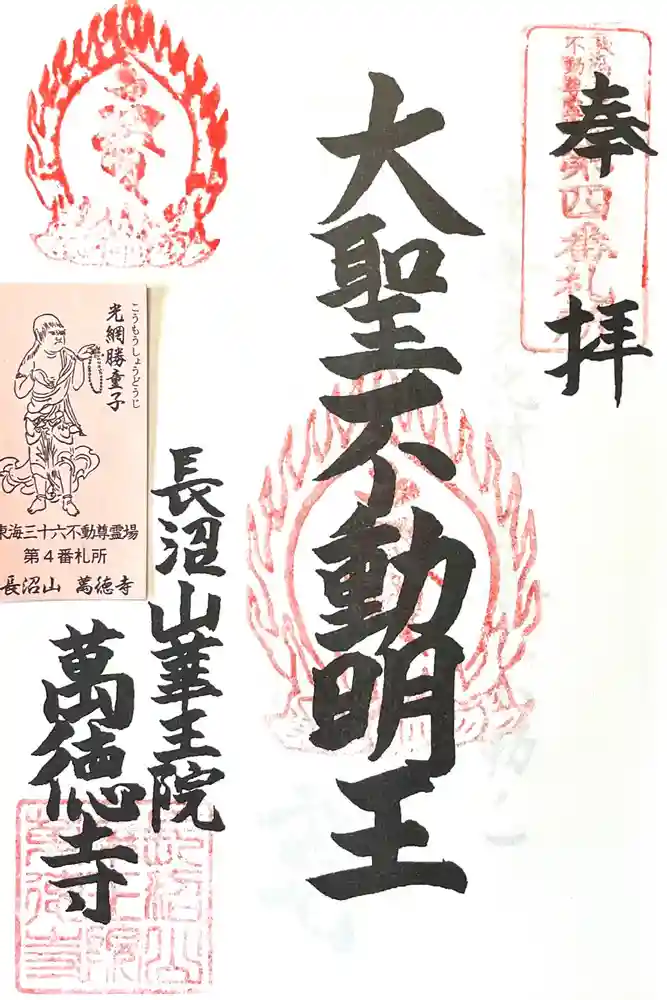 奉拝
第四番札所
大聖不動明王
長沼山華王院
萬徳寺
こうもうしょうどうじ
光網勝童子
東海三十六不動尊霊場
第4番札所
長沼山 萬徳寺